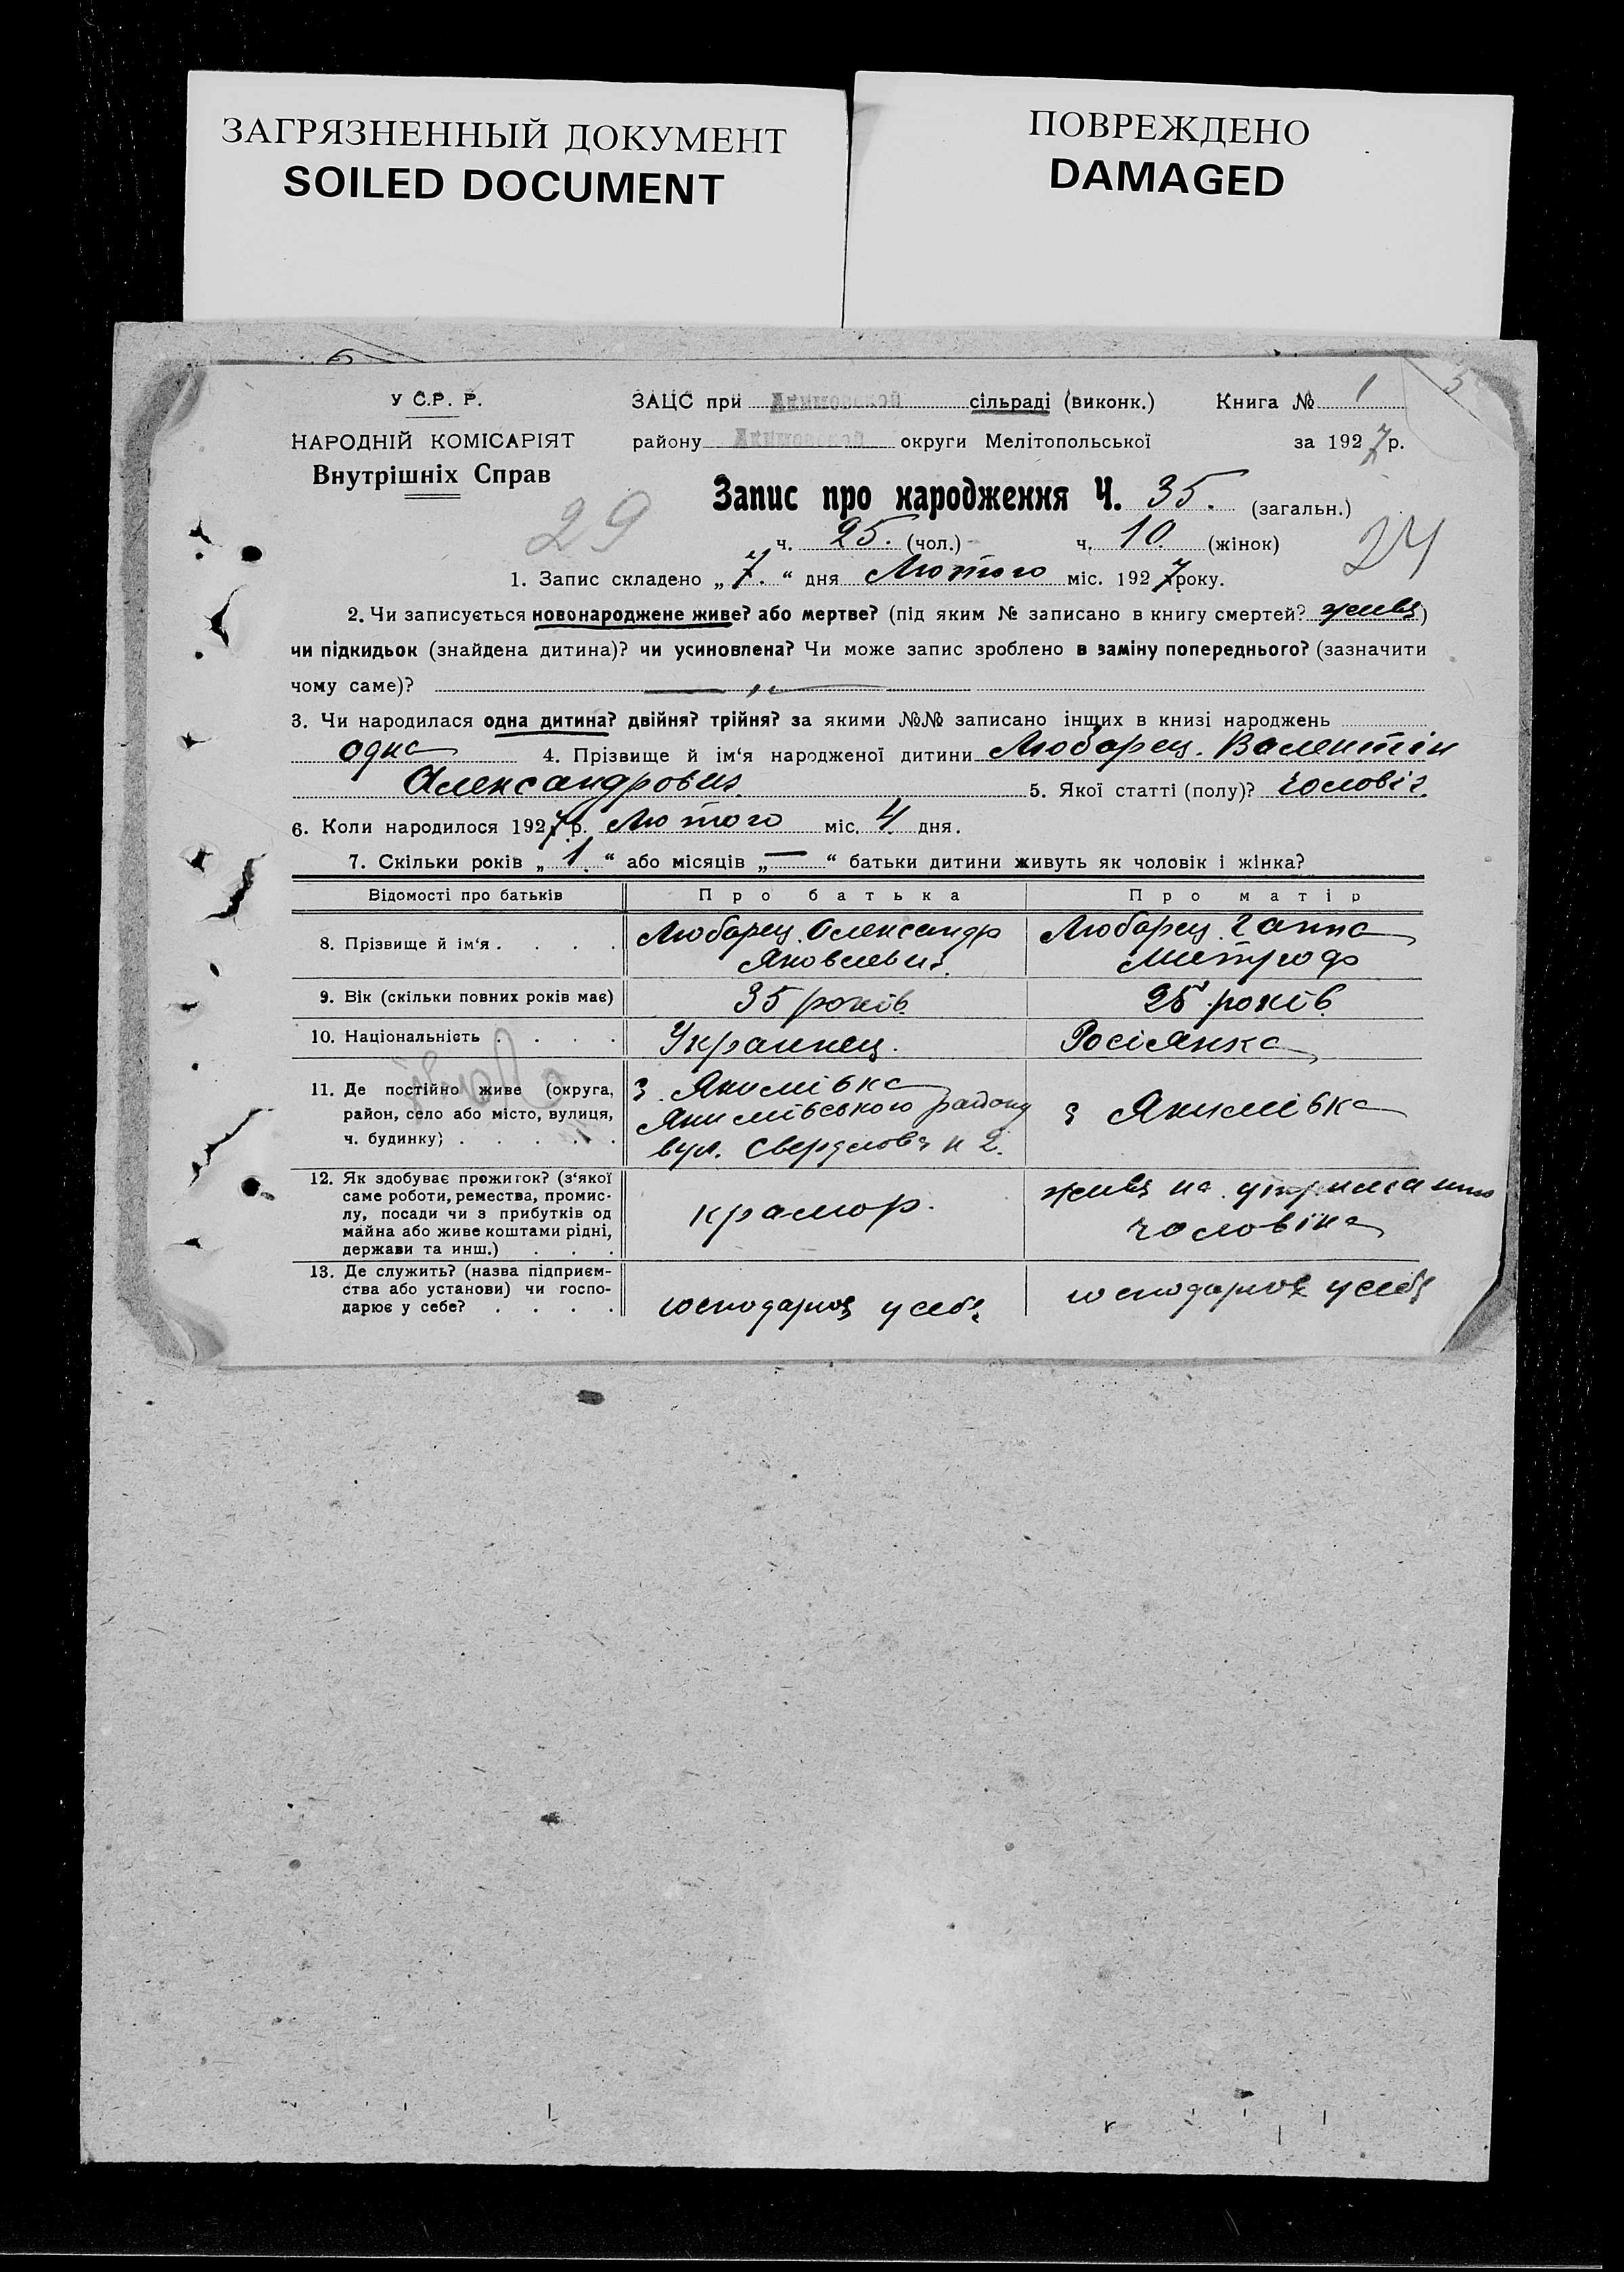 ЗАГРЯЗНЕННЫЙ ДОКУМЕНТ
SOILED DOCUMENT
ПОВРЕЖДЕНО
DAMAGED
У С.Р. Р.
НАРОДНІЙ КОМІСАРІЯТ
Внутрішніх Справ
ЗАЦС при Акимовской сільраді (виконк.) Книга № 1
району Акимовской округи Мелітопольської за 1927 р.
Запис про народження Ч. 35. (загальн.)
29
ч. 25. (чол.) ч. 10. (жінок)
24
1. Запис складено „7.“ дня Лютого міс. 1927 року.
2. Чи записується новонароджене живе? або мертве? (під яким № записано в книгу смертей? живе)
чи підкидьок (знайдена дитина)? чи усиновлена? Чи може запис зроблено в заміну попереднього? (зазначити
чому саме)?
3. Чи народилася одна дитина? двійня? трійня? за якими №№ записано інщих в книзі народжень
одна 4. Прізвище й ім‘я народженої дитини Любарец. Валентін
Александрович 5. Якої статті (полу)? чоловіч.
6. Коли народилося 1927 р. Лютого міс. 4 дня.
7. Скільки років „1“ або місяців „—“ батьки дитини живуть як чоловік і жінка?
Відомості про батьків Про батька Про матір
8. Прізвище й ім‘я . . . . Любарец. Олександр Яковлевич. Любарец. Ганна Митроф
9. Вік (скільки повних років має) 35 років. 25 років.
10. Національність . . . . Украинец. Росіянка
11. Де постійно живе (округа, район, село або місто, вулиця, ч. будинку) . . . . .
з. Якимівка Якимівського району вул. Свердлова н 2.
з Якимівка
12. Як здобуває прожиток? (з‘якої саме роботи, ремества, промислу, посади чи з прибутків од майна або живе коштами рідні, держави та инш.) . . .
крамор.
живе на утриманню чоловіка
13. Де служить? (назва підприємства або установи) чи господарює у себе? . . . .
господарює у себе
господарює у себе